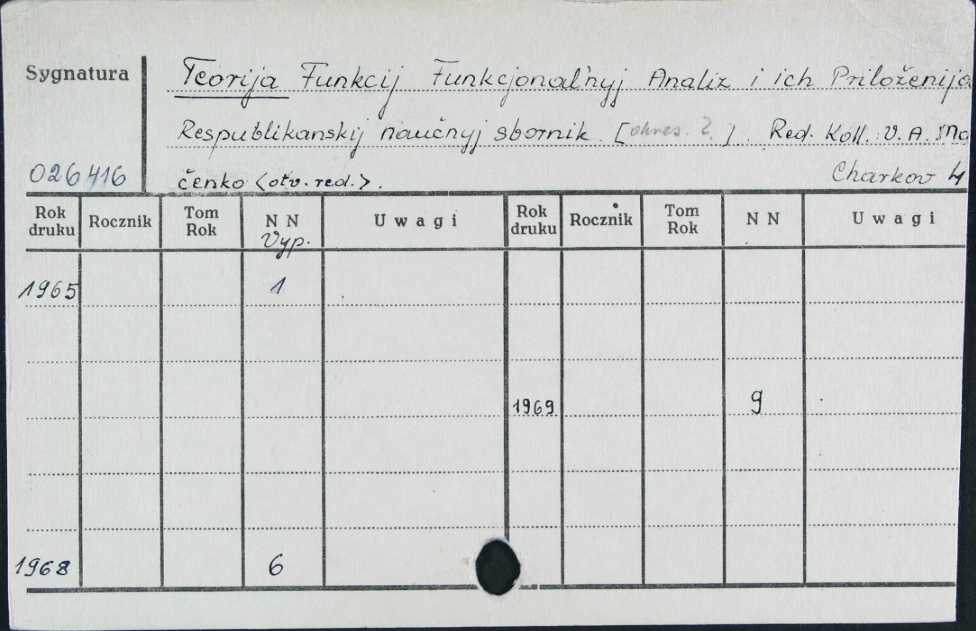 Sygnatura
Teorija Funkcij Funkcjonal'nyj Analiz i ich Priloženija
Respublikanskij naučnyj sbornik. [okres. 2.]. Red. Koll. V. A. Ma
026416 čenko <otv. red.>. Charkov 4
Rok druku Rocznik Tom Rok N N Vyp. Uwagi Rok druku Rocznik Tom Rok N N Uwagi
1965 1
1969 9
1968 6